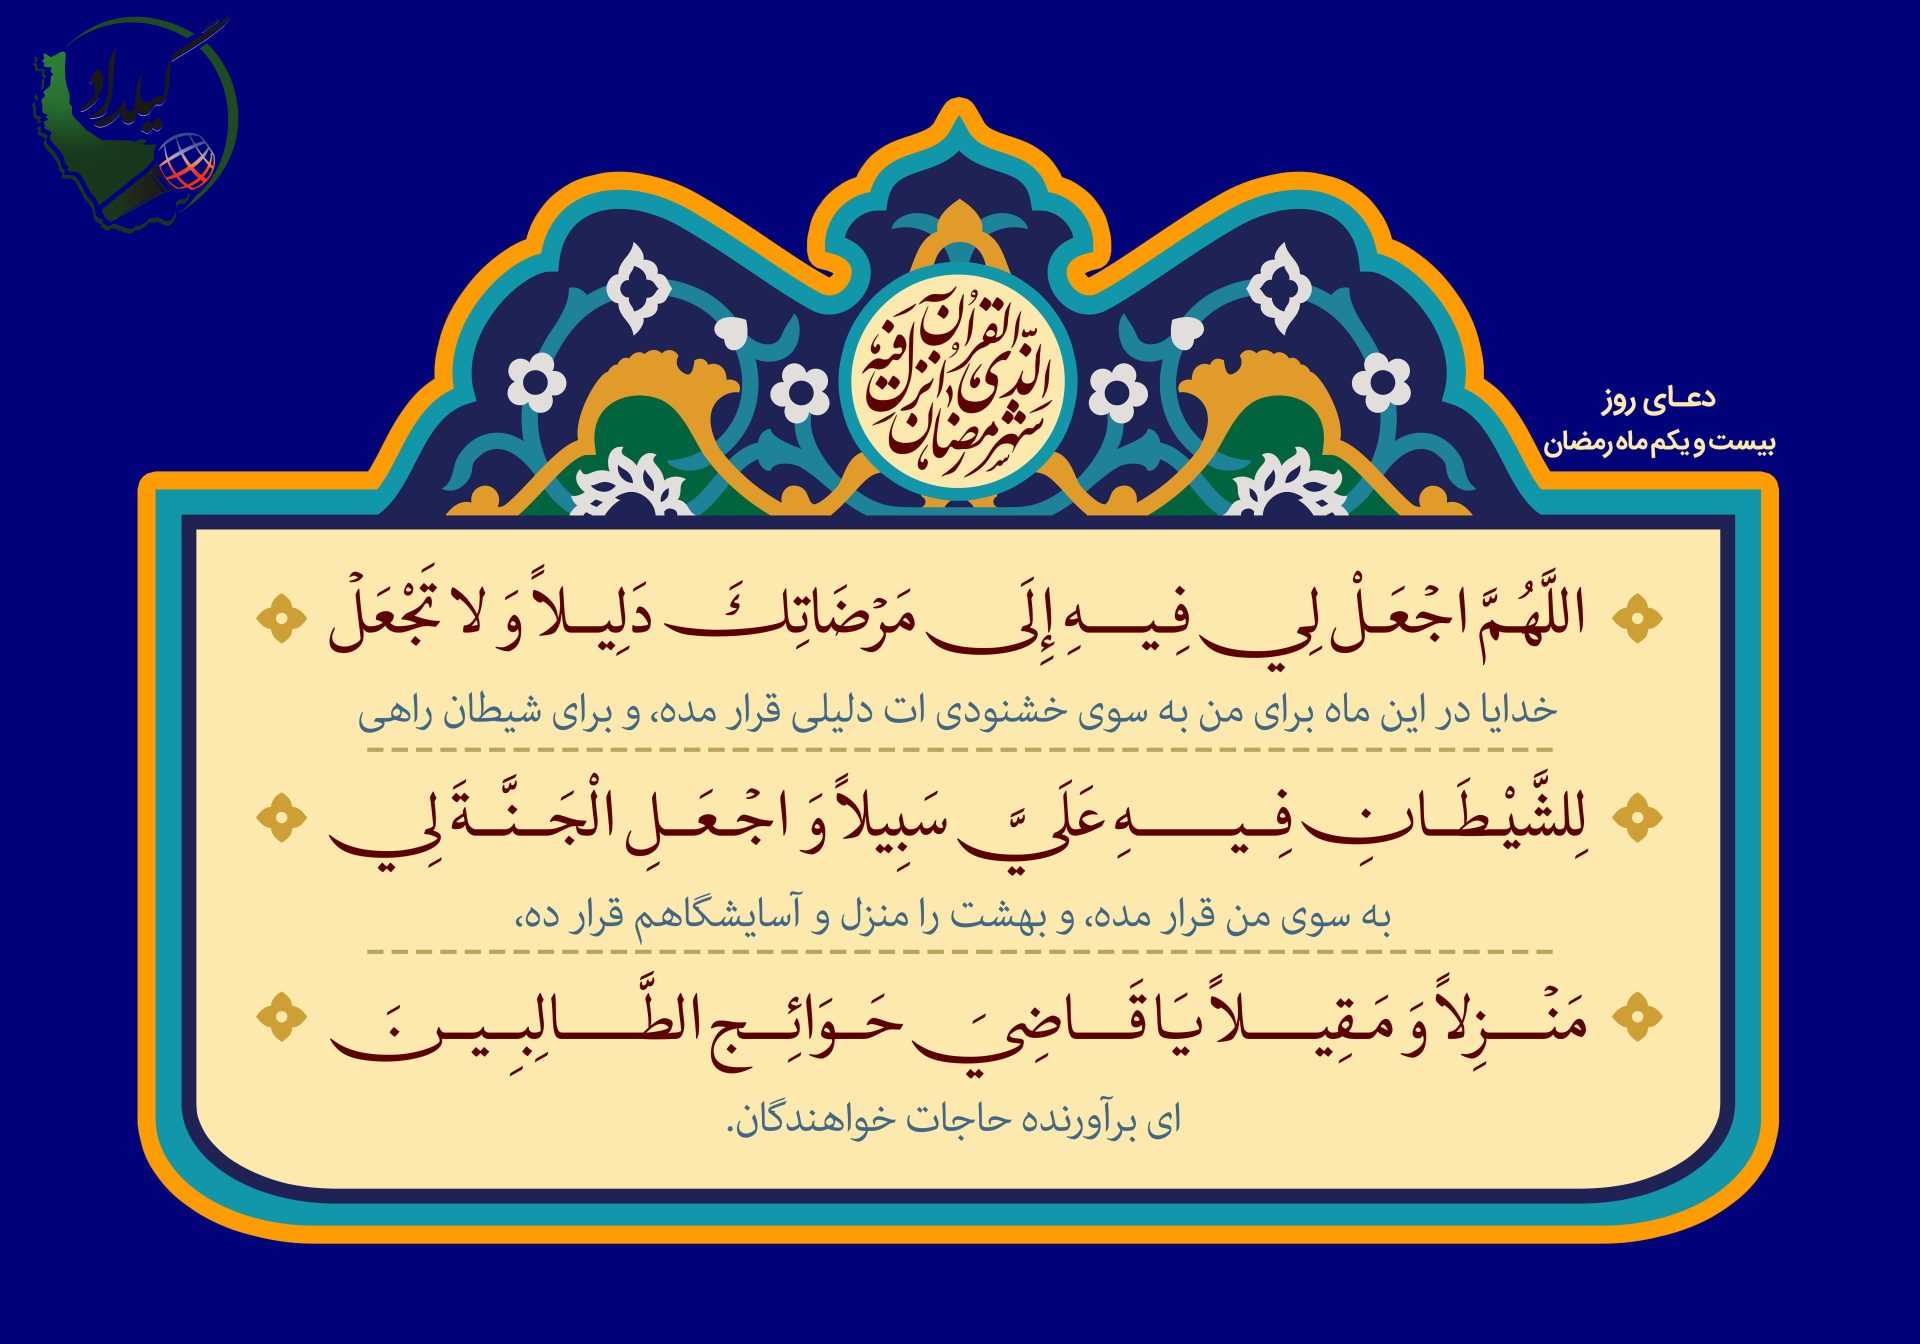 گیلداد
شهر رمضان
الذی انزل فیه
القرآن
دعـای روز
بیست و یکم ماه رمضان
اللَّهُمَّ اجْعَلْ لِي فِيهِ إِلَى مَرْضَاتِكَ دَلِيلاً وَ لا تَجْعَلْ
خدایا در این ماه برای من به سوی خشنودی ات دلیلی قرار مده، و برای شیطان راهی
لِلشَّيْطَانِ فِيهِ عَلَيَّ سَبِيلاً وَ اجْعَلِ الْجَنَّةَ لِي
به سوی من قرار مده، و بهشت را منزل و آسایشگاهم قرار ده،
مَنْزِلاً وَ مَقِيلاً يَا قَاضِيَ حَوَائِجِ الطَّالِبِينَ
ای برآورنده حاجات خواهندگان.